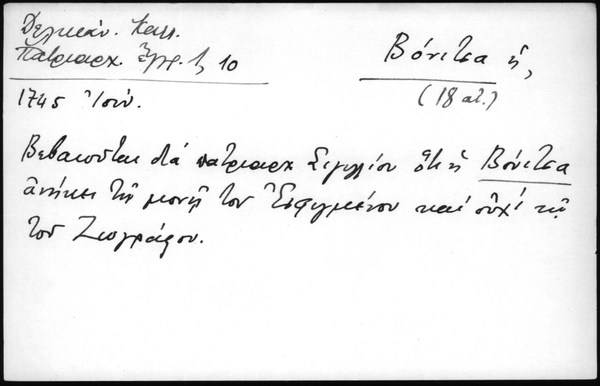 Δελικάν. Καλ.
Πατριαρχ. Ἔγγρ. 10
Βόνιτσα ἡ,
(18 αἰ.)
1745 Ἰούν.
Βεβαιοῦται διά πατριαρχ Σιγιλίου ὅτι ἡ Βόνιτσα
ἀνήκει τῇ μονῇ τοῦ Ἐσφιγμένου καί οὐχί τῇ
τοῦ Ζωγράφου.